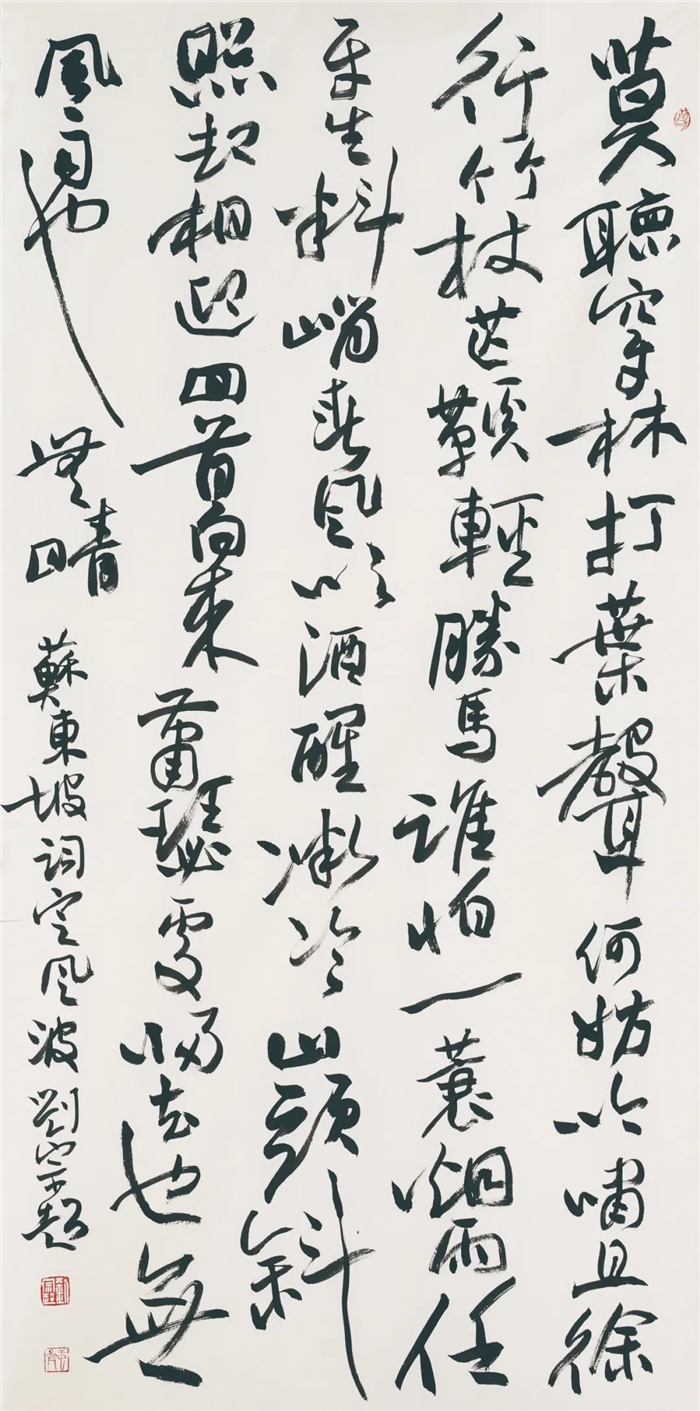 莫聽穿林打葉聲何妨吟嘯且徐
行竹杖芒鞵輕勝馬誰怕一蓑烟雨任
平生料峭春風吹酒醒微冷山頭斜
照却相迎回首向來蕭瑟處歸去也無
風雨也無晴
蘇東坡詞定風波劉宗超